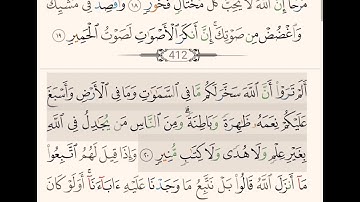 مَرَحًا إِنَّ ٱللَّهَ لَا يُحِبُّ كُلَّ مُخْتَالٍ فَخُورٍ ١٨ وَٱقْصِدْ فِي مَشْيِكَ
وَٱغْضُضْ مِن صَوْتِكَ إِنَّ أَنكَرَ ٱلْأَصْوَٰتِ لَصَوْتُ ٱلْحَمِيرِ ١٩
412
أَلَمْ تَرَوْا۟ أَنَّ ٱللَّهَ سَخَّرَ لَكُم مَّا فِي ٱلسَّمَٰوَٰتِ وَمَا فِي ٱلْأَرْضِ وَأَسْبَغَ
عَلَيْكُمْ نِعَمَهُۥ ظَٰهِرَةً وَبَاطِنَةً وَمِنَ ٱلنَّاسِ مَن يُجَٰدِلُ فِي ٱللَّهِ
بِغَيْرِ عِلْمٍ وَلَا هُدًى وَلَا كِتَٰبٍ مُّنِيرٍ ٢٠ وَإِذَا قِيلَ لَهُمُ ٱتَّبِعُوا۟
مَآ أَنزَلَ ٱللَّهُ قَالُوا۟ بَلْ نَتَّبِعُ مَا وَجَدْنَا عَلَيْهِ ءَابَآءَنَآ أَوَلَوْ كَانَ